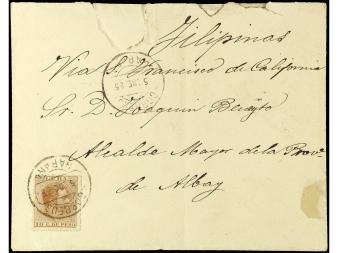 Filipinas
Via S. Francisco de California
Sr. D. Joaquin Beneyto
Alcalde Mayor de la Prov.ª
de Albay
CORREOS
HABANA
10 C. DE PESO